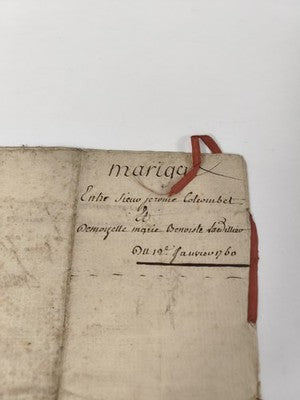 mariag
Entre Sieur jerome Colcombet
&
Demoiselle marie Benoiste
Du 12e Janvier 1760